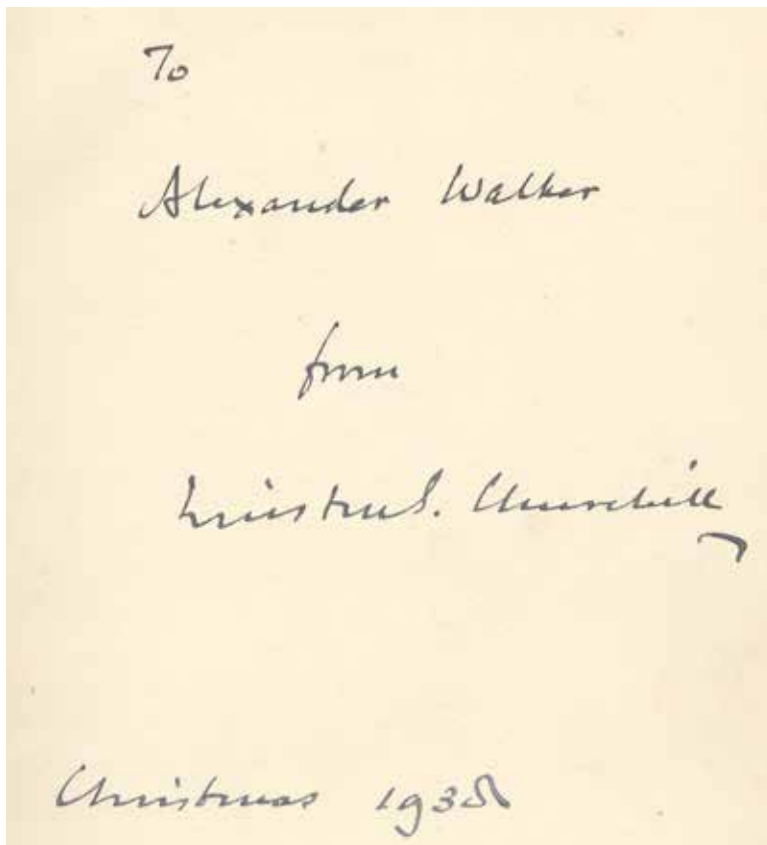 To
Alexander Walker
from
Winston S. Churchill
Christmas 1938